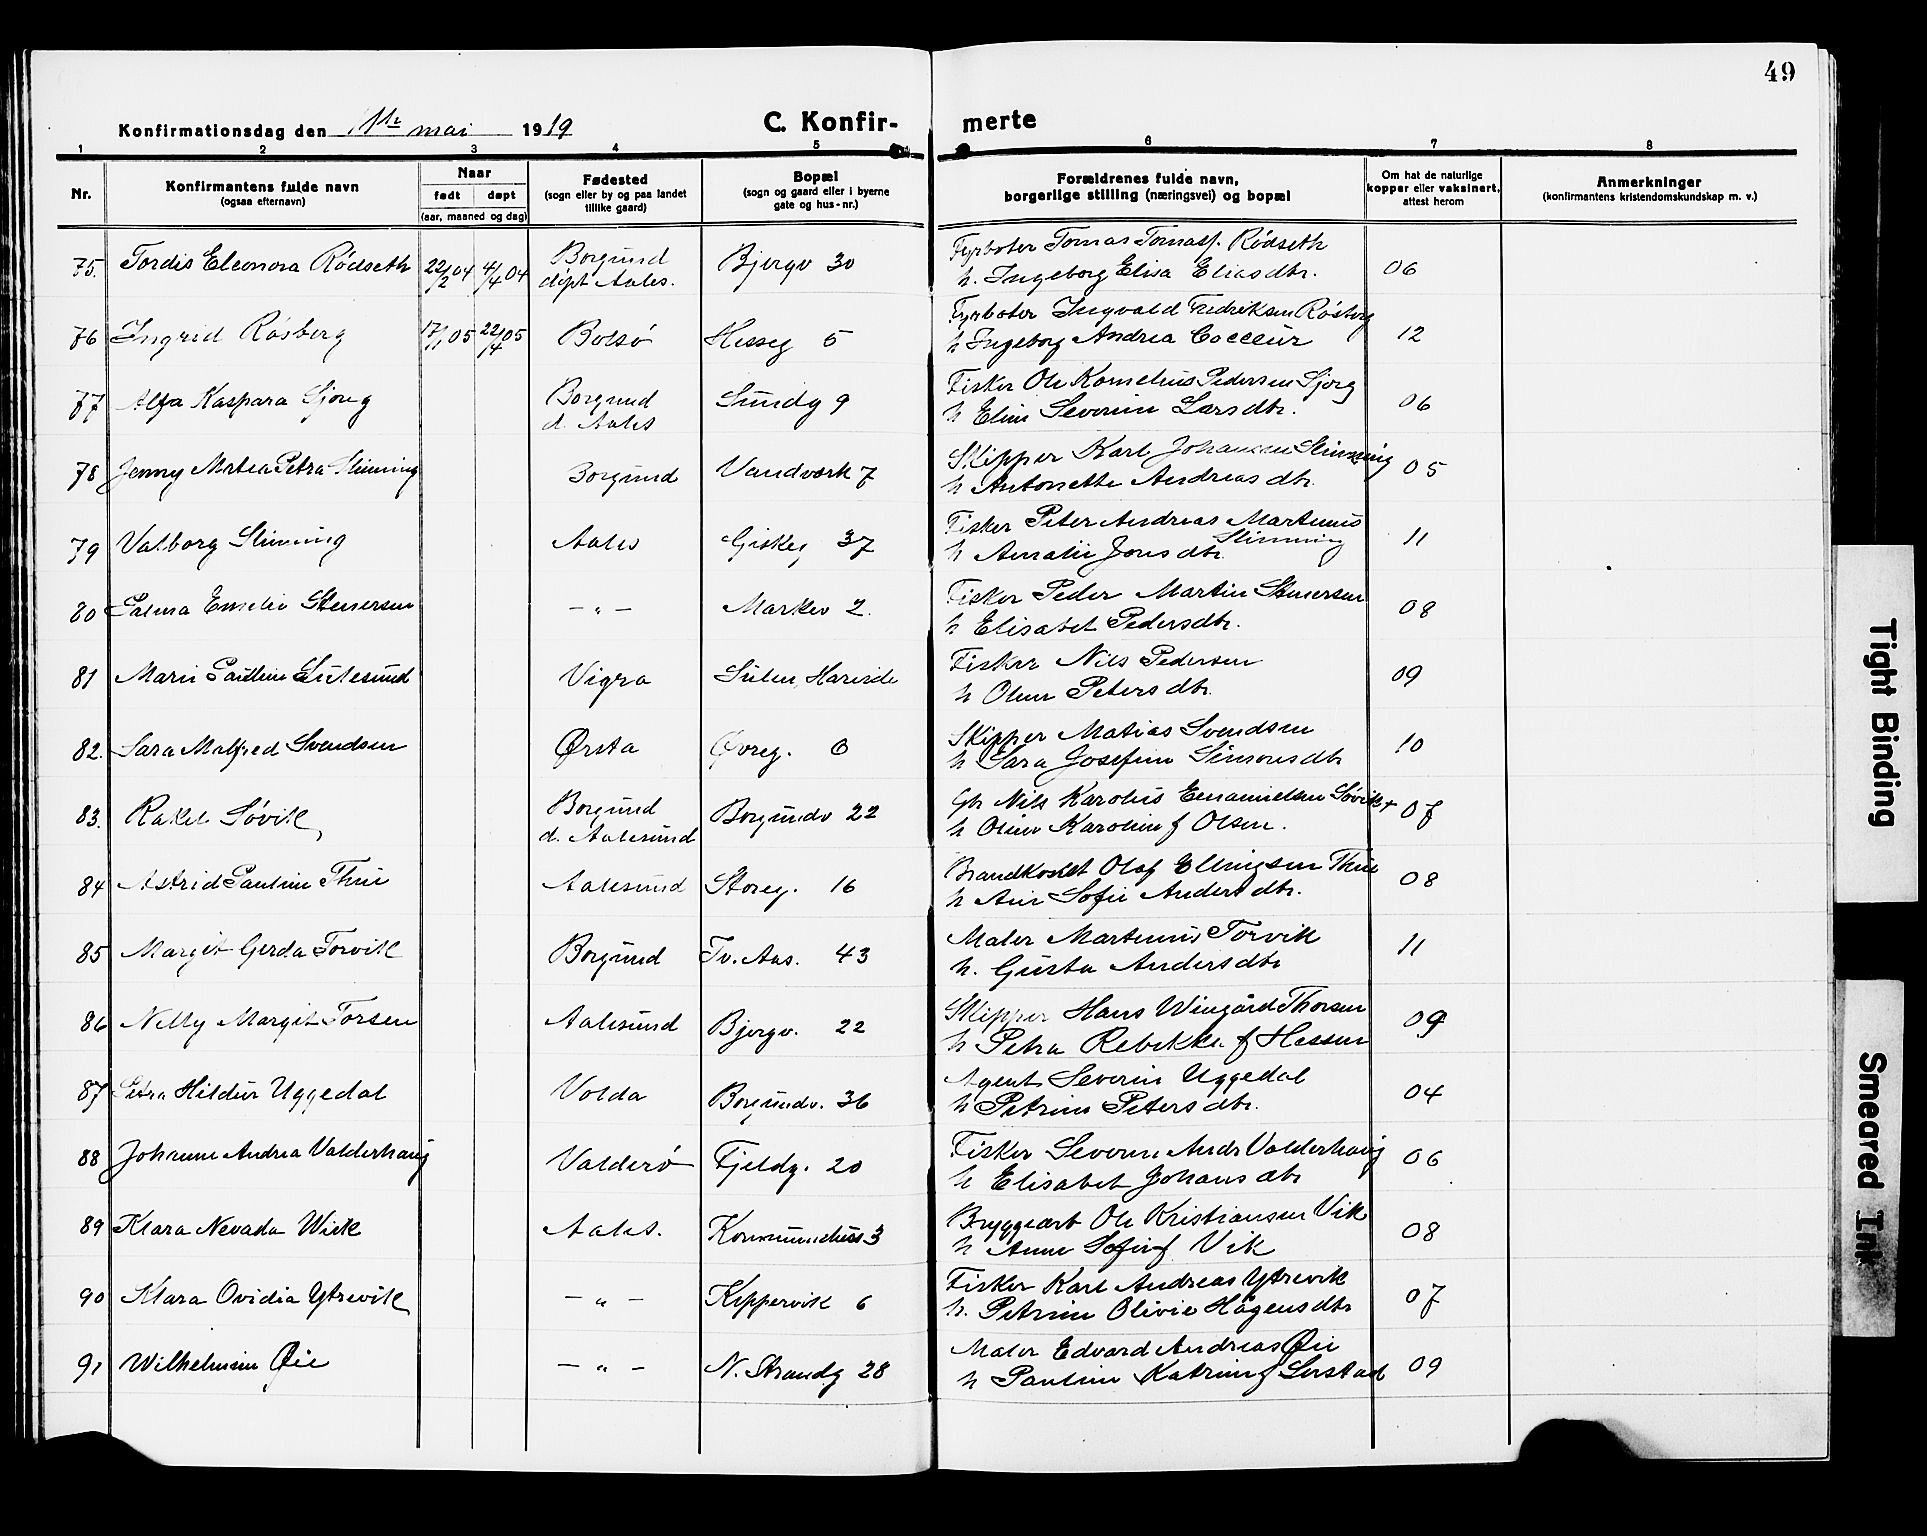 49
Konfirmationsdag den mai 1919 C. Konfir- merte
1 2 3 4 5 6 7 8
Nr. Konfirmantens fulde navn (ogsaa efternavn) Naar født døpt (aar, maaned og dag) Fødested (sogn eller by og paa landet tillike gaard) Bopæl (sogn og gaard eller i byerne gate og hus-nr.) Forældrenes fulde navn, borgerlige stilling (næringsvei) og bopæl Om hat de naturlige kopper eller vaksinert, attest herom Anmerkninger (konfirmantens kristendomskundskap m. v.)
75. Tordis Eleonora Rødseth 22/2 04 4/4 04 Borgund døpt Aales. Bjergv 30 Fyrbøter Tomas Tomass. Rødseth
h. Ingeborg Elisa Eliasdtr. 06
76 Ingrid Røsberg 17/1 05 22/4 05 Bolsø Hesseg 5 Fyrbøter Ingvald Fredriksen Røsberg
h Ingeborg Andrea 12
77 Alfa Kaspara Gjøreg Borgund d. Aales Sundg 9 Fisker Ole Kornelius Pedersen
h Eline Severine Larsdtr. 06
78 Jenny Matea Petra Slinning Borgund Vandværk 7 Skipper Karl Johansen Slinning
h Antonette Andreasdtr. 05
79 Valborg Slinning Aales Giskeg 37 Fisker Peter Andreas Martinus Slinning
h Amalie Jonsdtr. 11
80 Palma Emelie Stenersen – " – Markev 2. Fisker Peder Martin Stenersen
h Elisabet Pedersdtr. 08
81 Marie Pauline Vigra Fisker Nils Pedersen
h Oline Petersdtr. 09
82. Sara Malfred Svendsen Ørsta Øvreg. 6 Skipper Matias Svendsen
h Sara Josefine Simonsdtr 10
83. Rakel Søvik Borgund d. Aalesund Borgundv 22 Gb Nils Karolius Emanuelsen Søvik +
h Oline Karoline f Olsen. 07
84 Astrid Pauline Thue Aalesund Storeg. 16 Olaf Ellingsen Thue
h Ane Sofie Andersdtr. 08
85 Margit Gerda Torvik Borgund Tv. Aas. 43 Maler Martinus Torvik
h. Gusta Andersdtr 11
86 Nelly Margit Torsen Aalesund Bjergv. 22 Skipper Hans Wingård Thorsen
h Petra Rebekka f Hessen 09
87 Petra Hildur Uggedal Volda Borgundv. 36 Agent Severin Uggedal
h Petrine Petersdtr. 04
88 Johanne Andrea Valderhaug Valderø Fjeldg. 20 Fisker Severin Andr Valderhaug
h Elisabet Johansdtr 06
89 Klara Nevada Wiik Aales. 3 Bryggearb Ole Kristiansen Vik
h Anne Sofie f Vik 08
90 Klara Ovidia Ytrevik – " – Kippervik 6 Fisker Karl Andreas Ytrevik
h. Petrine Olivie Hågensdtr 07
91 Wilhelmine Øie – " – N. Strandg 28 Maler Edvard Andreas Øie
h Pauline Katrine f 09
Tight Binding
Smeared Ink